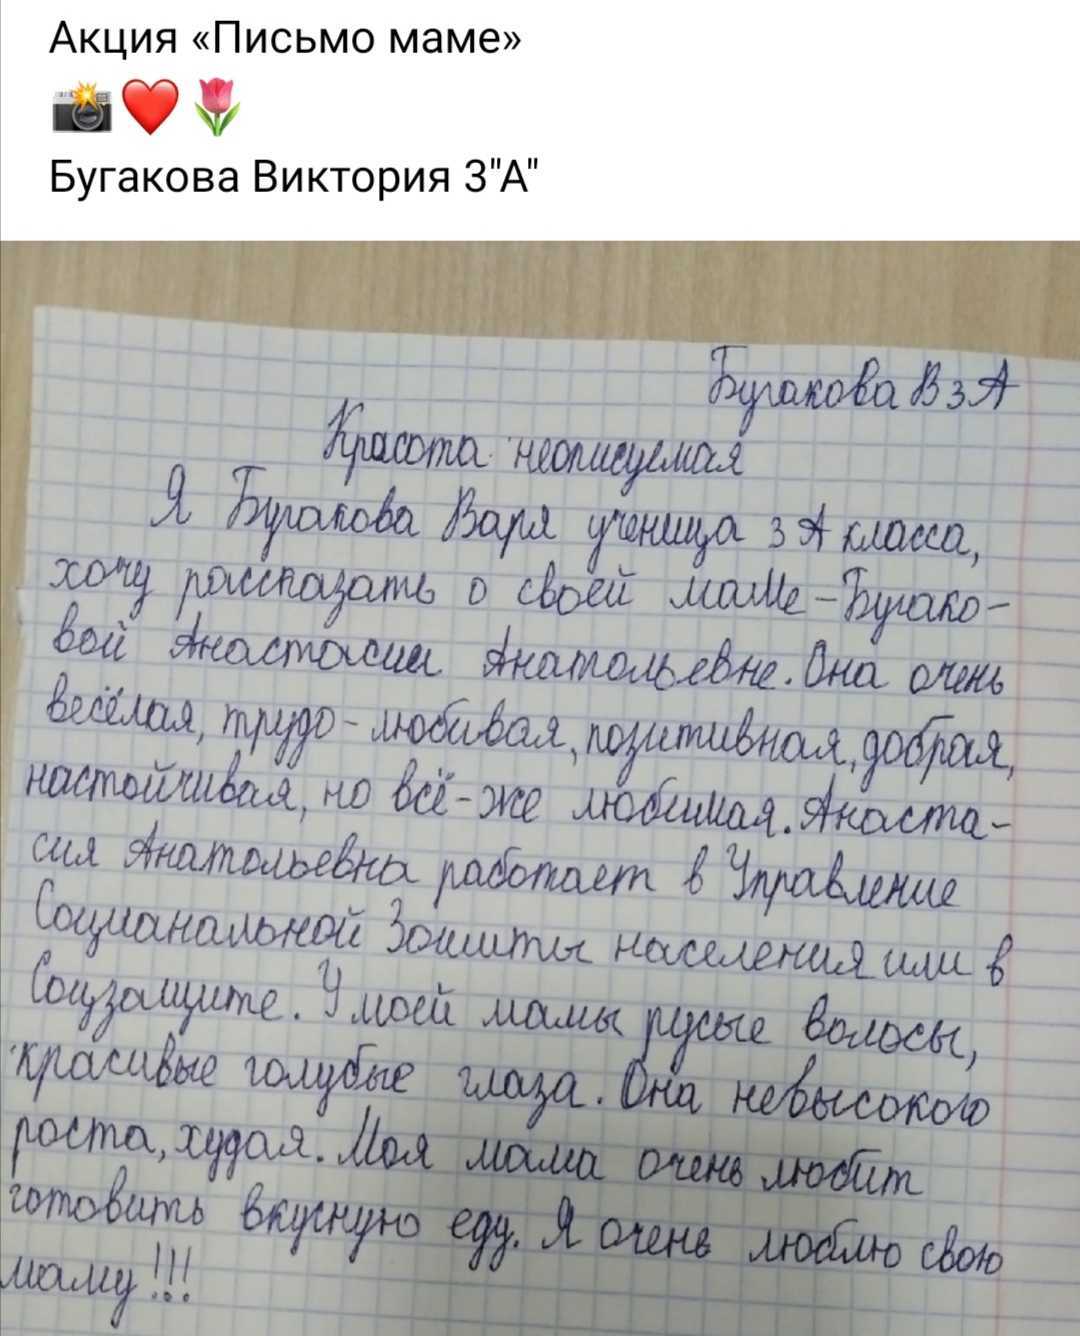 Акция «Письмо маме»
Бугакова Виктория 3"А"
Бугакова В 3 А
Красота неописуемая
Я Бугакова Варя ученица 3 А класса,
хочу рассказать о своей маме – Бугако-
вой Анастасии Анатольевне. Она очень
весёлая, трудо-любивая, позитивная, добрая,
настойчивая, но всё-же любимая. Анаста-
сия Анатольевна работает в Управление
Социанальной Зошиты населения или в
Соцзащите. У моей мамы русые волосы,
красивые голубые глаза. Она невысокого
роста, худая. Моя мама очень любит
готовить вкусную еду. Я очень люблю свою
маму!!!